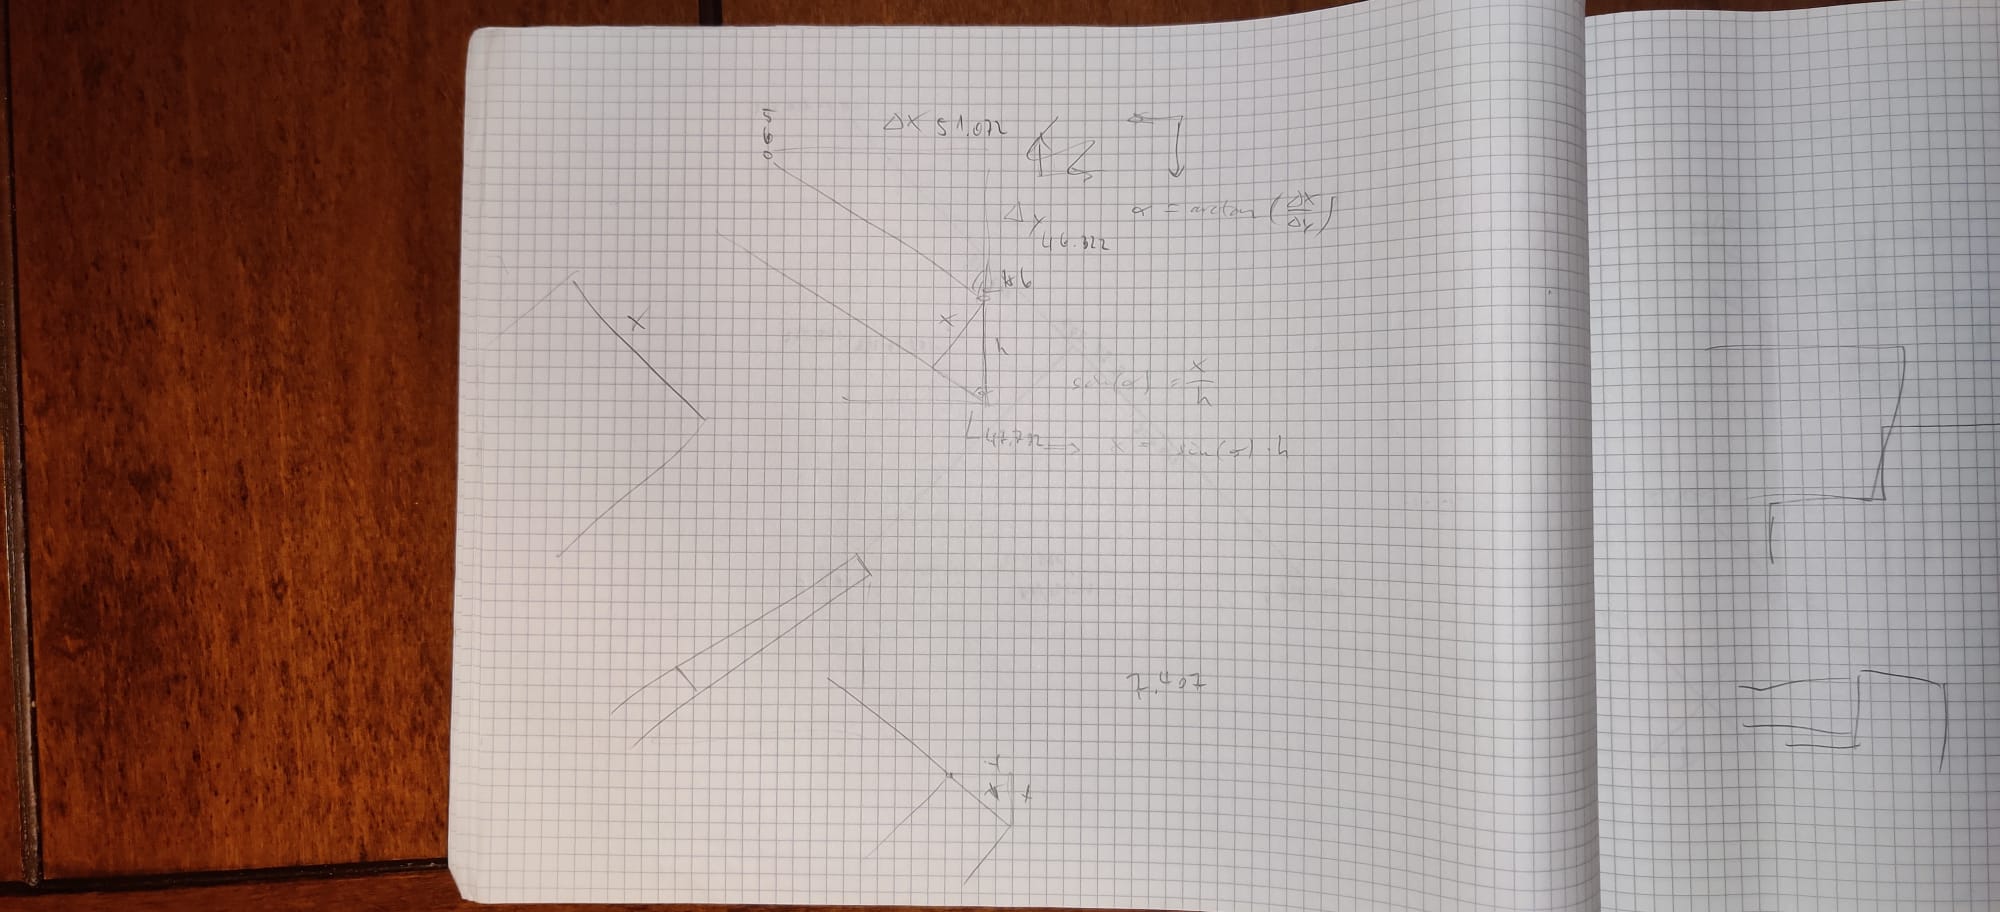 560
Δx 51.072
Δy 46.322
α = arctan (Δx/Δy)
x
h
x
sin(α) = x/h
47.792 → x = sin(α) · h
7.407
x